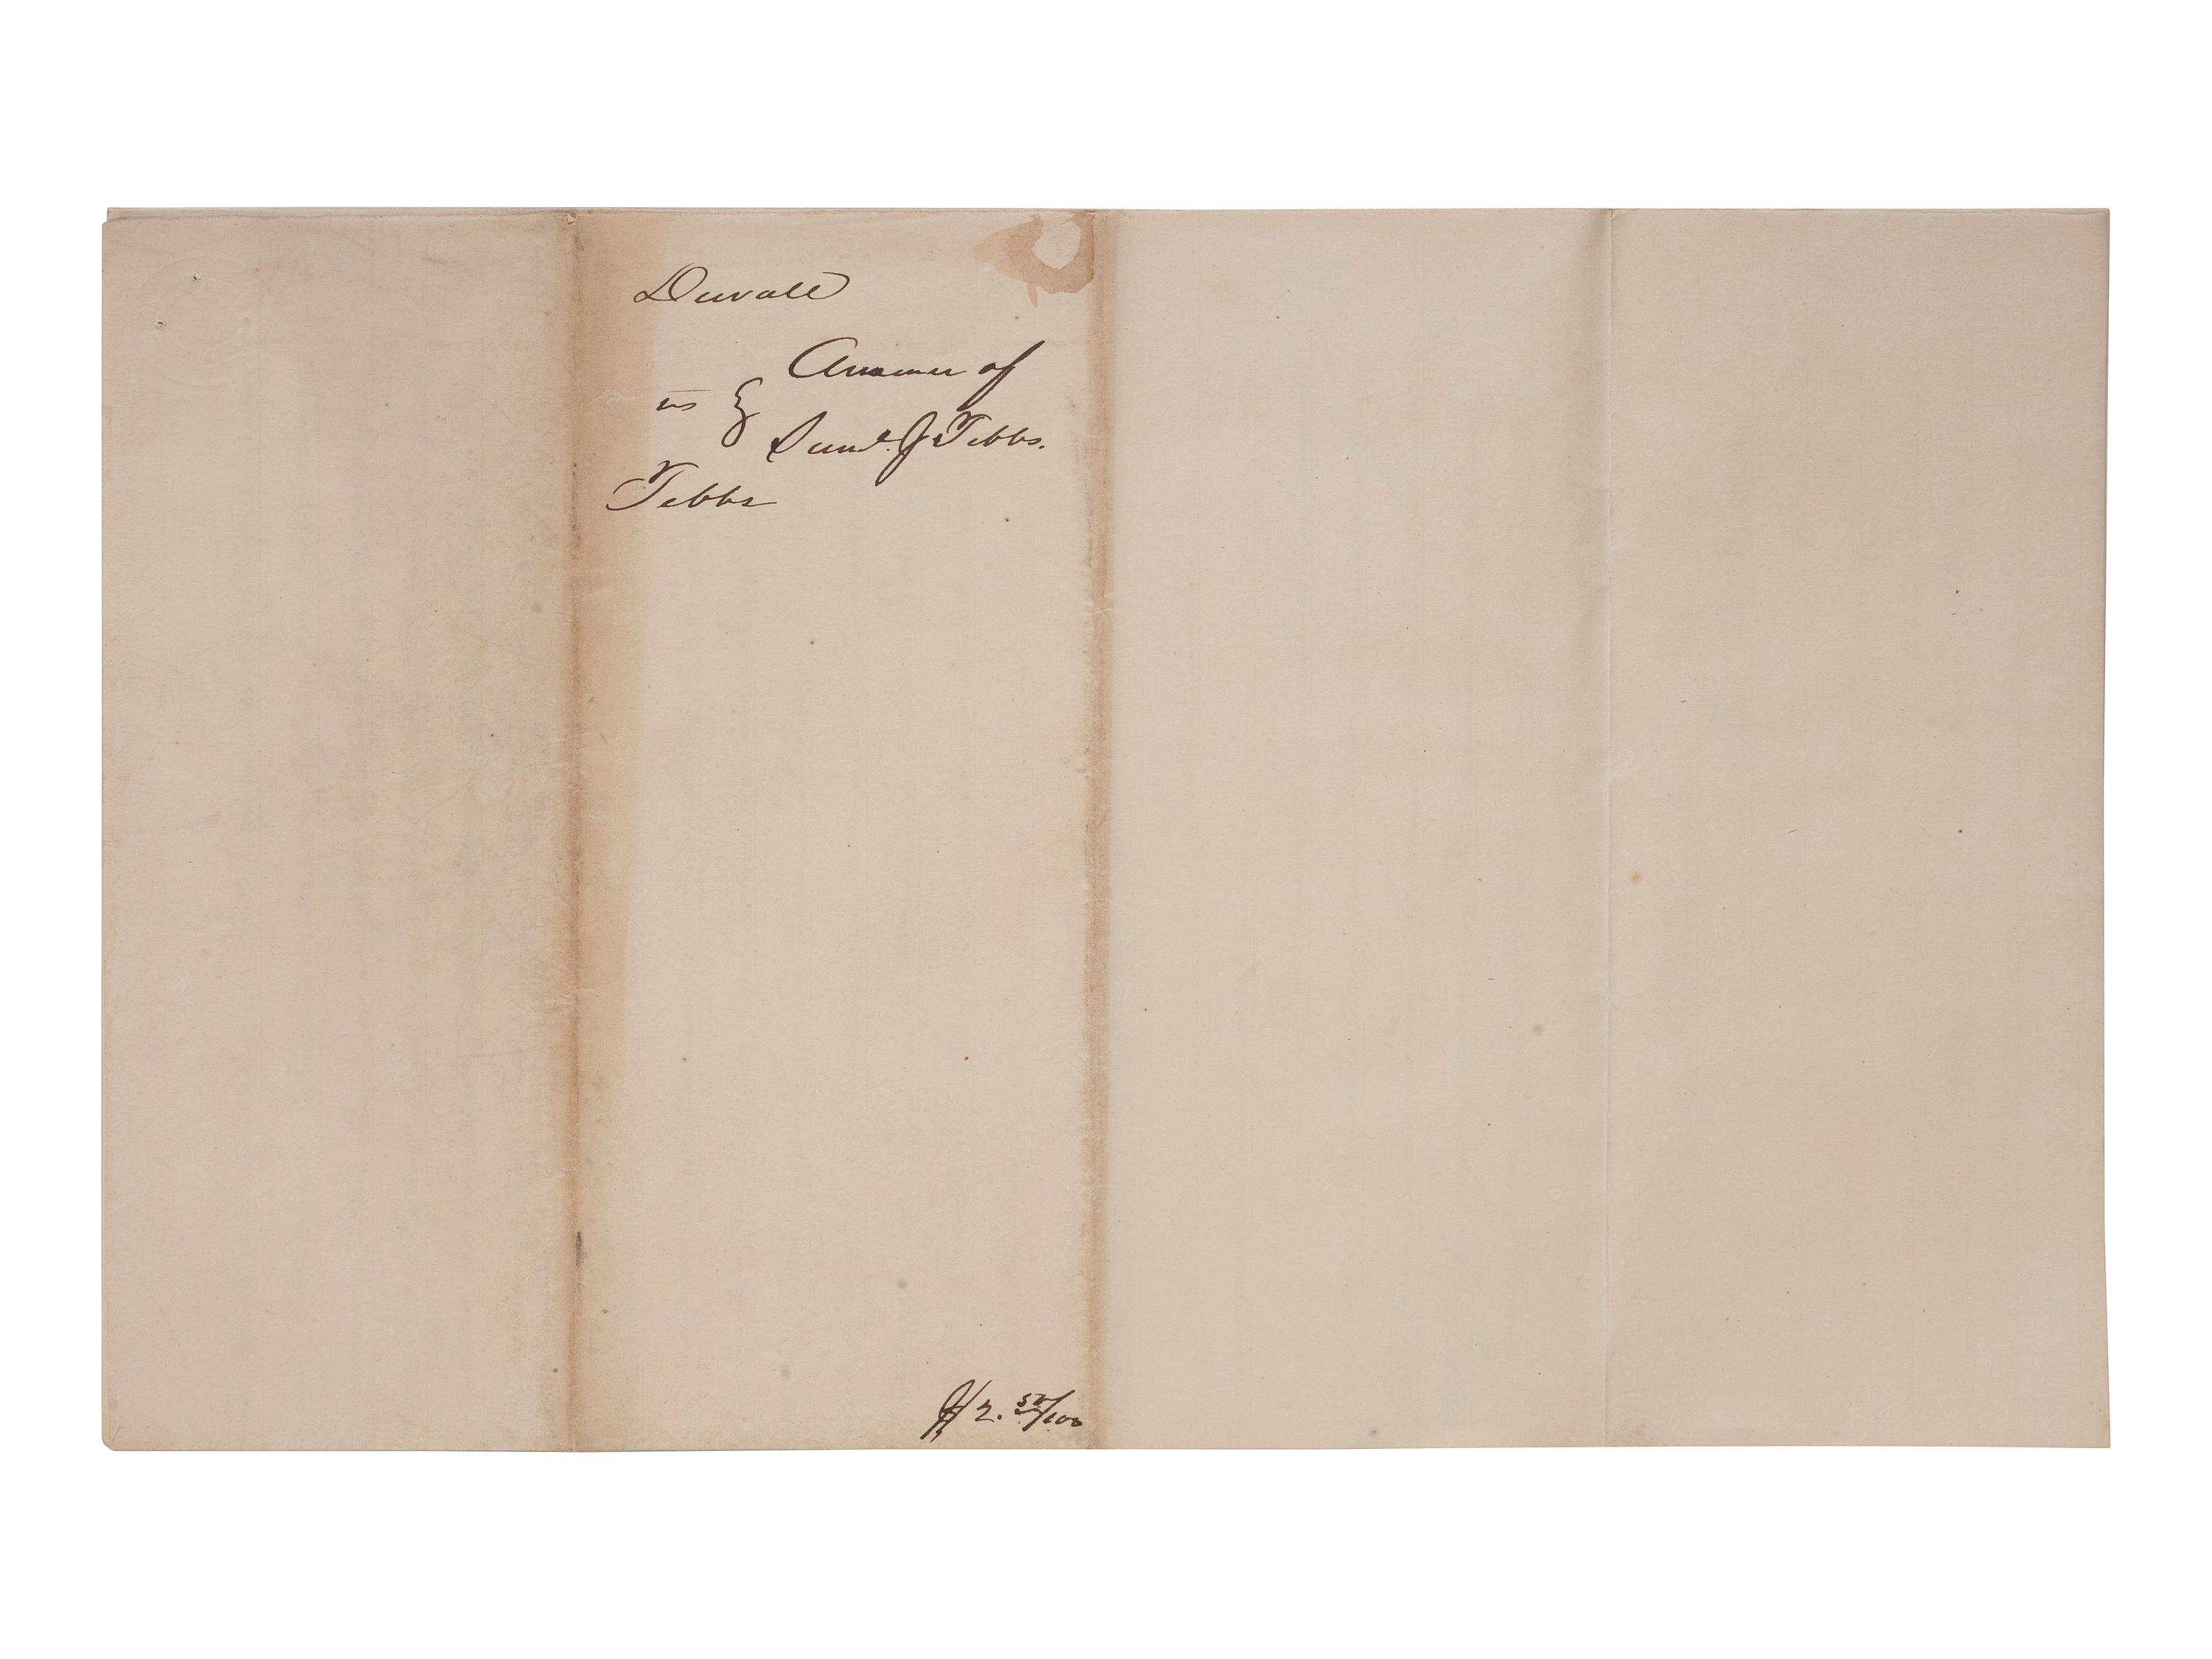 Duvall
Answer of
vs
Saml. J Tebbs.
Tebbs
$2. 50/100